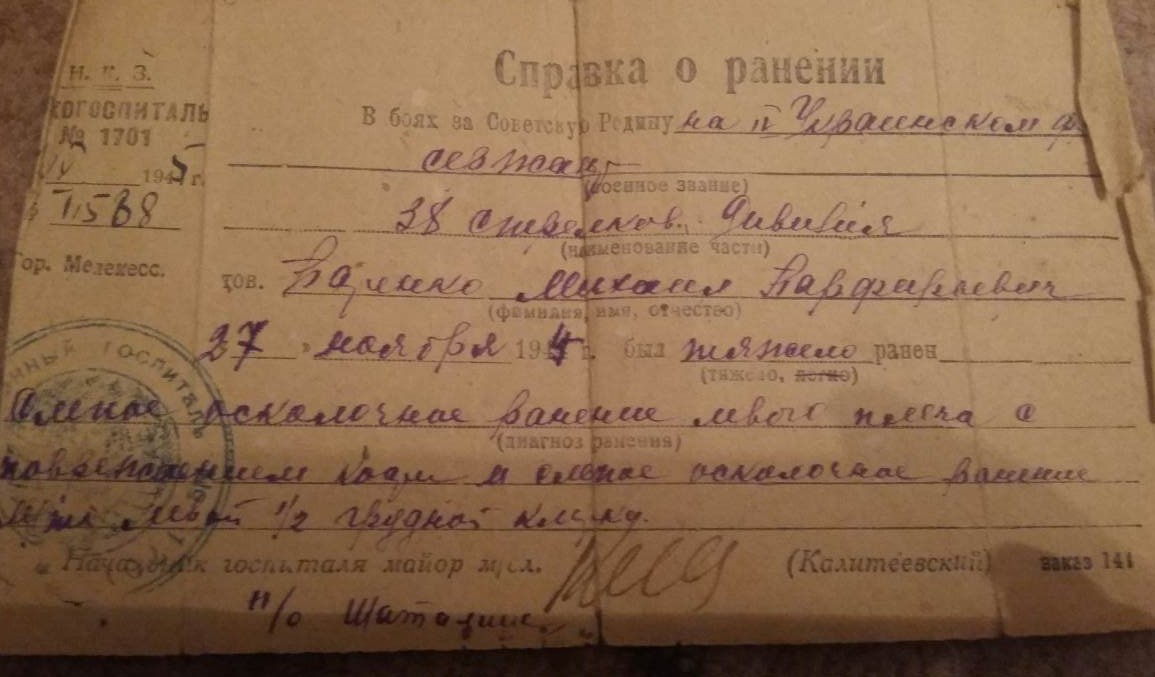 Н. К. З.
КОГОСПИТАЛЬ
№ 1701
IV 1945 г.
Гор. Мелекесс.
Справка о ранении
В боях за Советскую Родину на II Украинском ф.
сержант
(военное звание)
38 стрелков. Дивизия
(наименование части)
тов. Михаил Парфирьевич
(фамилия, имя, отчество)
27 » ноября 1944 г. был тяжело ранен
(тяжело, легко)
Слепое осколочное ранение левого плеча с
(диагноз ранения)
повреждением кости и слепое осколочное ранение
м/тк левой 1/2 грудной клетки.
Начальник госпиталя майор м/сл. (Калитеевский) заказ 141